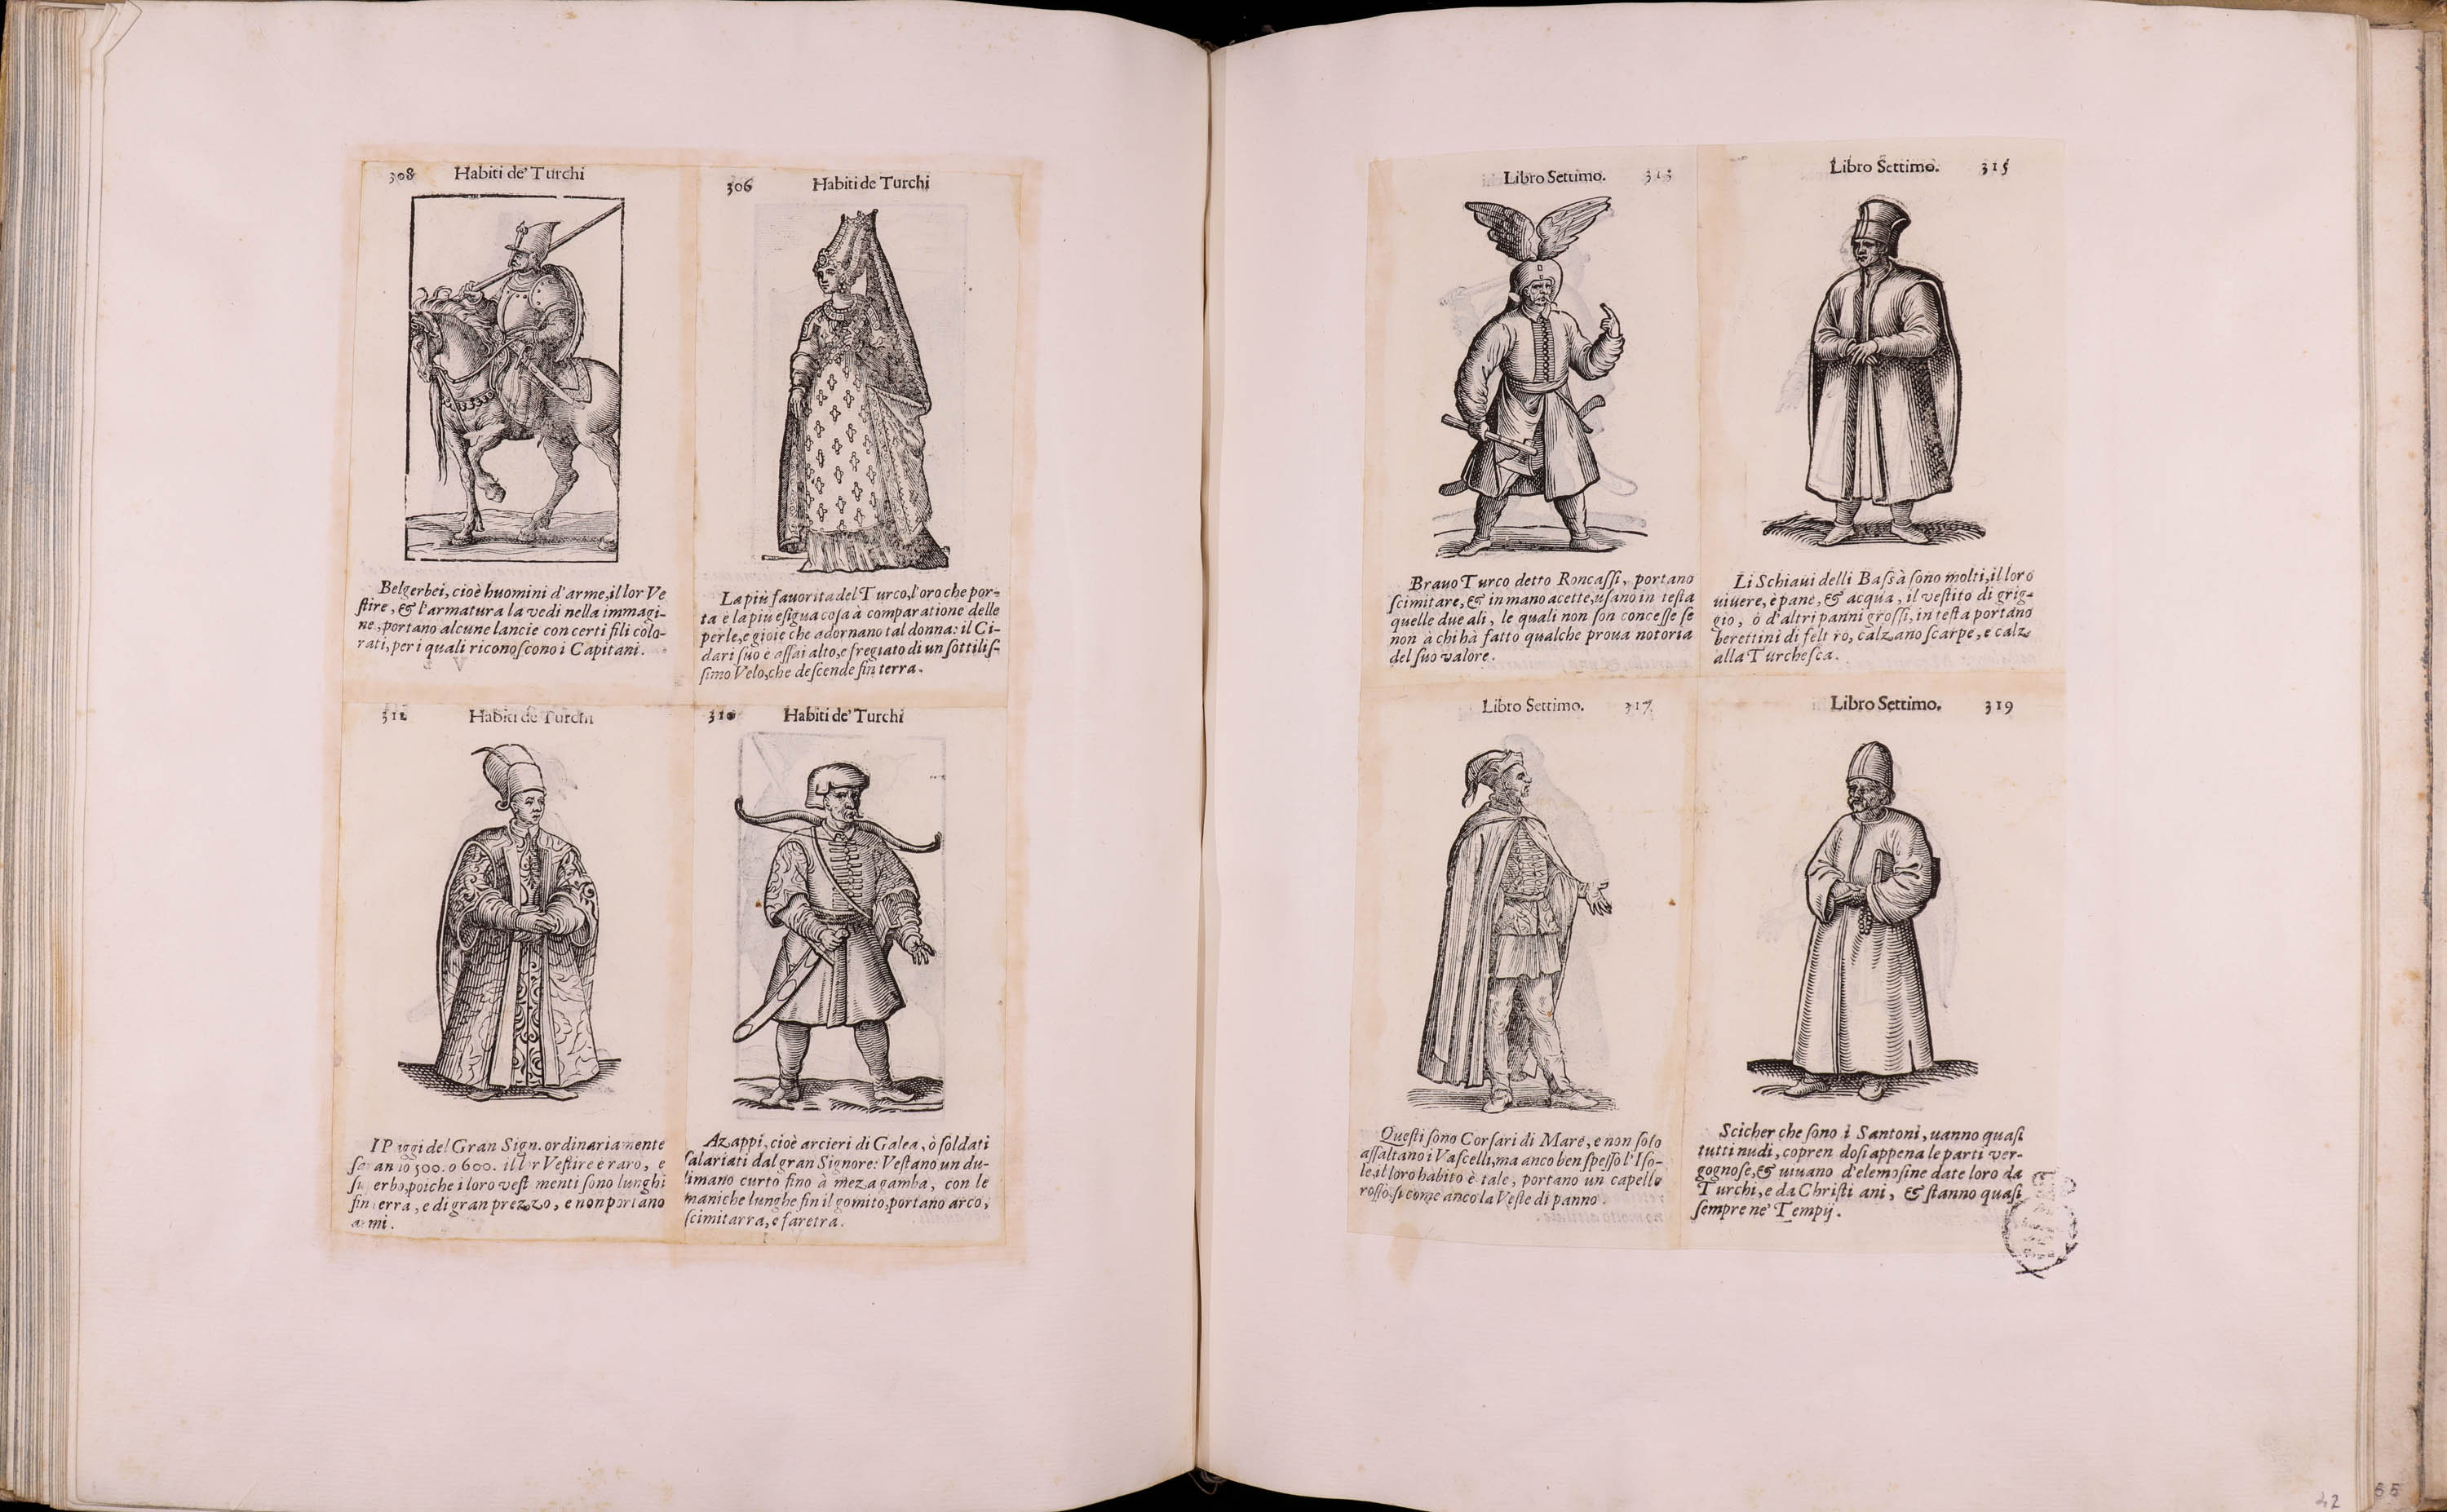 308 Habiti de' Turchi
Belgerbei, cioè huomini d'arme, il lor Ve
ſtire, & l'armatura la vedi nella immagi-
ne, portano alcune lancie con certi fili colo-
rati, per i quali riconoſcono i Capitani.
306 Habiti de Turchi
La più fauorita del Turco, l'oro che por-
ta è la più eſigua coſa à comparatione delle
perle, e gioie che adornano tal donna: il Ci-
dari ſuo è aſſai alto, e fregiato di un ſottiliſ-
ſimo Velo, che deſcende fin terra.
312 Habiti de Turchi
I P ggi del Gran Sign. ordinariamente
ſaran io 500. o 600. il l r Veſtire e raro, e
ſu erbo, poiche i loro veſt menti ſono lunghi
fin erra, e di gran prezzo, e non portano
a mi.
310 Habiti de' Turchi
Azappi, cioè arcieri di Galea, ò ſoldati
ſalariati dal gran Signore: Veſtano un du-
limano curto fino à meza gamba, con le
maniche lunghe fin il gomito, portano arco,
ſcimitarra, e faretra.
Libro Settimo. 313
Brauo Turco detto Roncaſſi, portano
ſcimitare, & in mano acette, uſano in teſta
quelle due ali, le quali non ſon conceſſe ſe
non à chi hà fatto qualche proua notoria
del ſuo valore.
Libro Settimo. 315
Li Schiaui delli Baſsà ſono molti, il loro
uiuere, è pane, & acqua, il veſtito di grig-
gio, ò d'altri panni groſſi, in teſta portano
berettini di felt ro, calzano ſcarpe, e calz
alla Turcheſca.
Libro Settimo. 317
Queſti ſono Corſari di Mare, e non ſolo
aſſaltano i Vaſcelli, ma anco ben ſpeſſo l'Iſo-
le, il loro habito è tale, portano un capello
roſſo, ſi come anco la Veſte di panno.
Libro Settimo. 319
Scicher che ſono i Santoni, uanno quaſi
tutti nudi, copren doſi appena le parti ver-
gognoſe, & uiuano d'elemoſine date loro da
Turchi, e da Chriſti ani, & ſtanno quaſi
ſempre ne' Tempij.
42